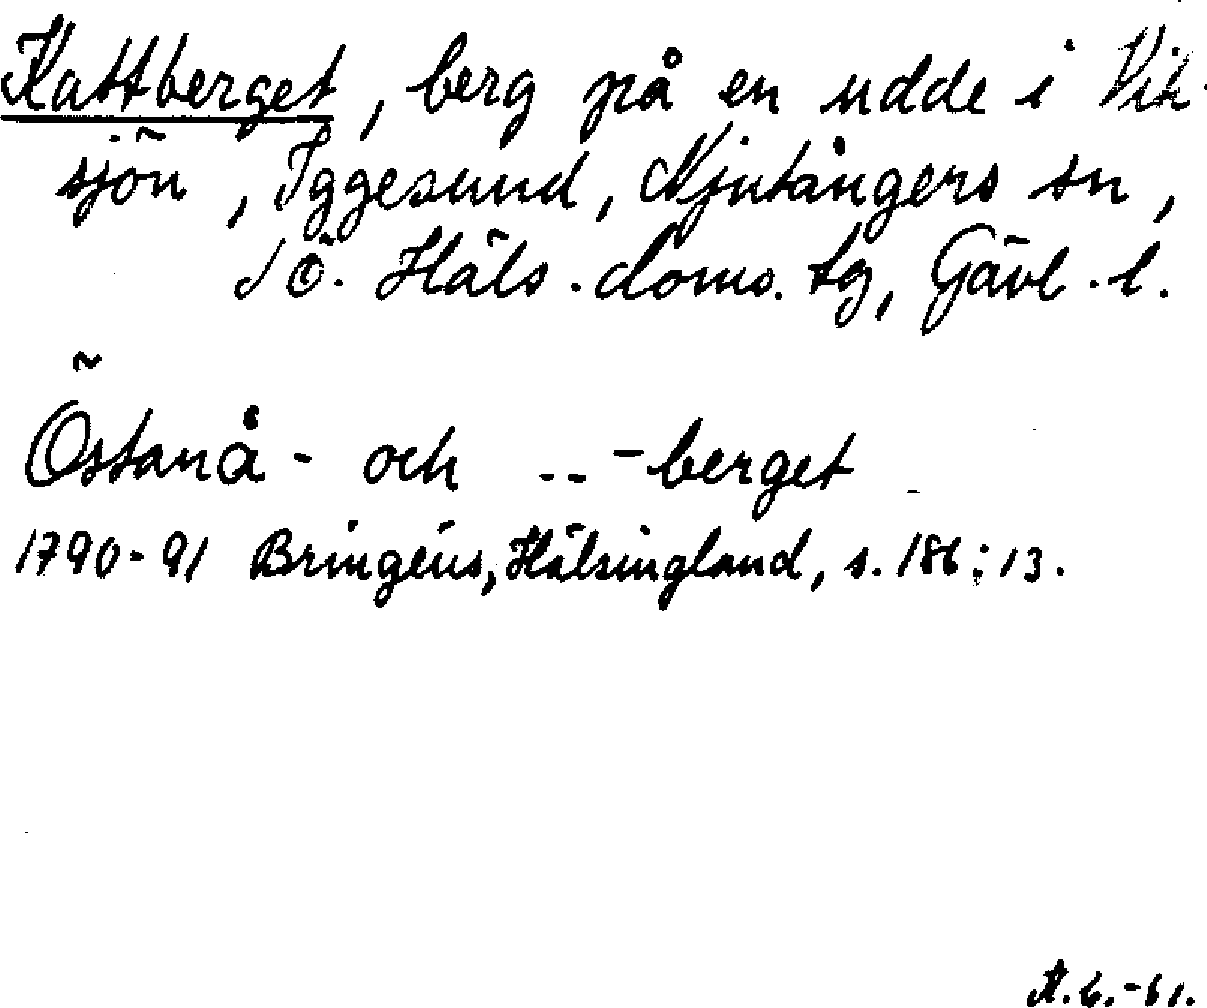 Kattberget, berg på en udde i Vik-
sjön, Iggesund, Njutångers sn,
SÖ. Häls. doms. tg, Gävl. l.
Östanå- och -- -berget
1790-91 Bringéus, Hälsingland, s. 186:13.
A.6.-61.